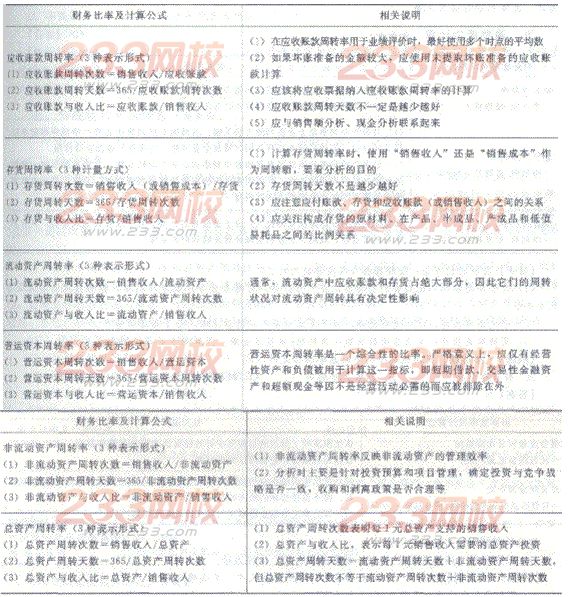 财务比率及计算公式
相关说明
应收账款周转率（3种表示形式）
(1) 应收账款周转次数＝销售收入/应收账款
(2) 应收账款周转天数＝365/应收账款周转次数
(3) 应收账款与收入比＝应收账款/销售收入
(1) 在应收账款周转率用于业绩评价时，最好使用多个时点的平均数
(2) 如果坏账准备的金额较大，应使用未提取坏账准备的应收账
款计算
(3) 应该将应收票据纳入应收账款周转率的计算
(4) 应收账款周转天数不一定是越少越好
(5) 应与销售额分析、现金分析联系起来
存货周转率（3种计量方式）
(1) 存货周转次数＝销售收入（或销售成本）/存货
(2) 存货周转天数＝365/存货周转次数
(3) 存货与收入比＝存货/销售收入
(1) 计算存货周转率时，使用“销售收入”还是“销售成本”作
为周转额，要看分析的目的
(2) 存货周转天数不是越少越好
(3) 应注意应付账款、存货和应收账款（或销售收入）之间的关系
(4) 应关注构成存货的原材料、在产品、半成品、产成品和低值
易耗品之间的比例关系
流动资产周转率（3种表示形式）
(1) 流动资产周转次数＝销售收入/流动资产
(2) 流动资产周转天数＝365/流动资产周转次数
(3) 流动资产与收入比＝流动资产/销售收入
通常，流动资产中应收账款和存货占绝大部分，因此它们的周转
状况对流动资产周转具有决定性影响
营运资本周转率（3种表示形式）
(1) 营运资本周转次数＝销售收入/营运资本
(2) 营运资本周转天数＝365/营运资本周转次数
(3) 营运资本与收入比＝营运资本/销售收入
营运资本周转率是一个综合性的比率。严格意义上，应仅有经营
性资产和负债被用于计算这一指标，即短期借款、交易性金融资
产和超额现金等因不是经营活动必需的而应被排除在外
财务比率及计算公式
相关说明
非流动资产周转率（3种表示形式）
(1) 非流动资产周转次数＝销售收入/非流动资产
(2) 非流动资产周转天数＝365/非流动资产周转次数
(3) 非流动资产与收入比＝非流动资产/销售收入
(1) 非流动资产周转率反映非流动资产的管理效率
(2) 分析时主要是针对投资预算和项目管理，确定投资与竞争战
略是否一致，收购和剥离政策是否合理等
总资产周转率（3种表示形式）
(1) 总资产周转次数＝销售收入/总资产
(2) 总资产周转天数＝365/总资产周转次数
(3) 总资产与收入比＝总资产/销售收入
(1) 总资产周转次数表明每1元总资产支持的销售收入
(2) 总资产与收入比，表示每1元销售收入需要的总资产投资
(3) 总资产周转天数＝流动资产周转天数＋非流动资产周转天数，
但总资产周转次数不等于流动资产周转次数＋非流动资产周转次数
233网校
www.233.com